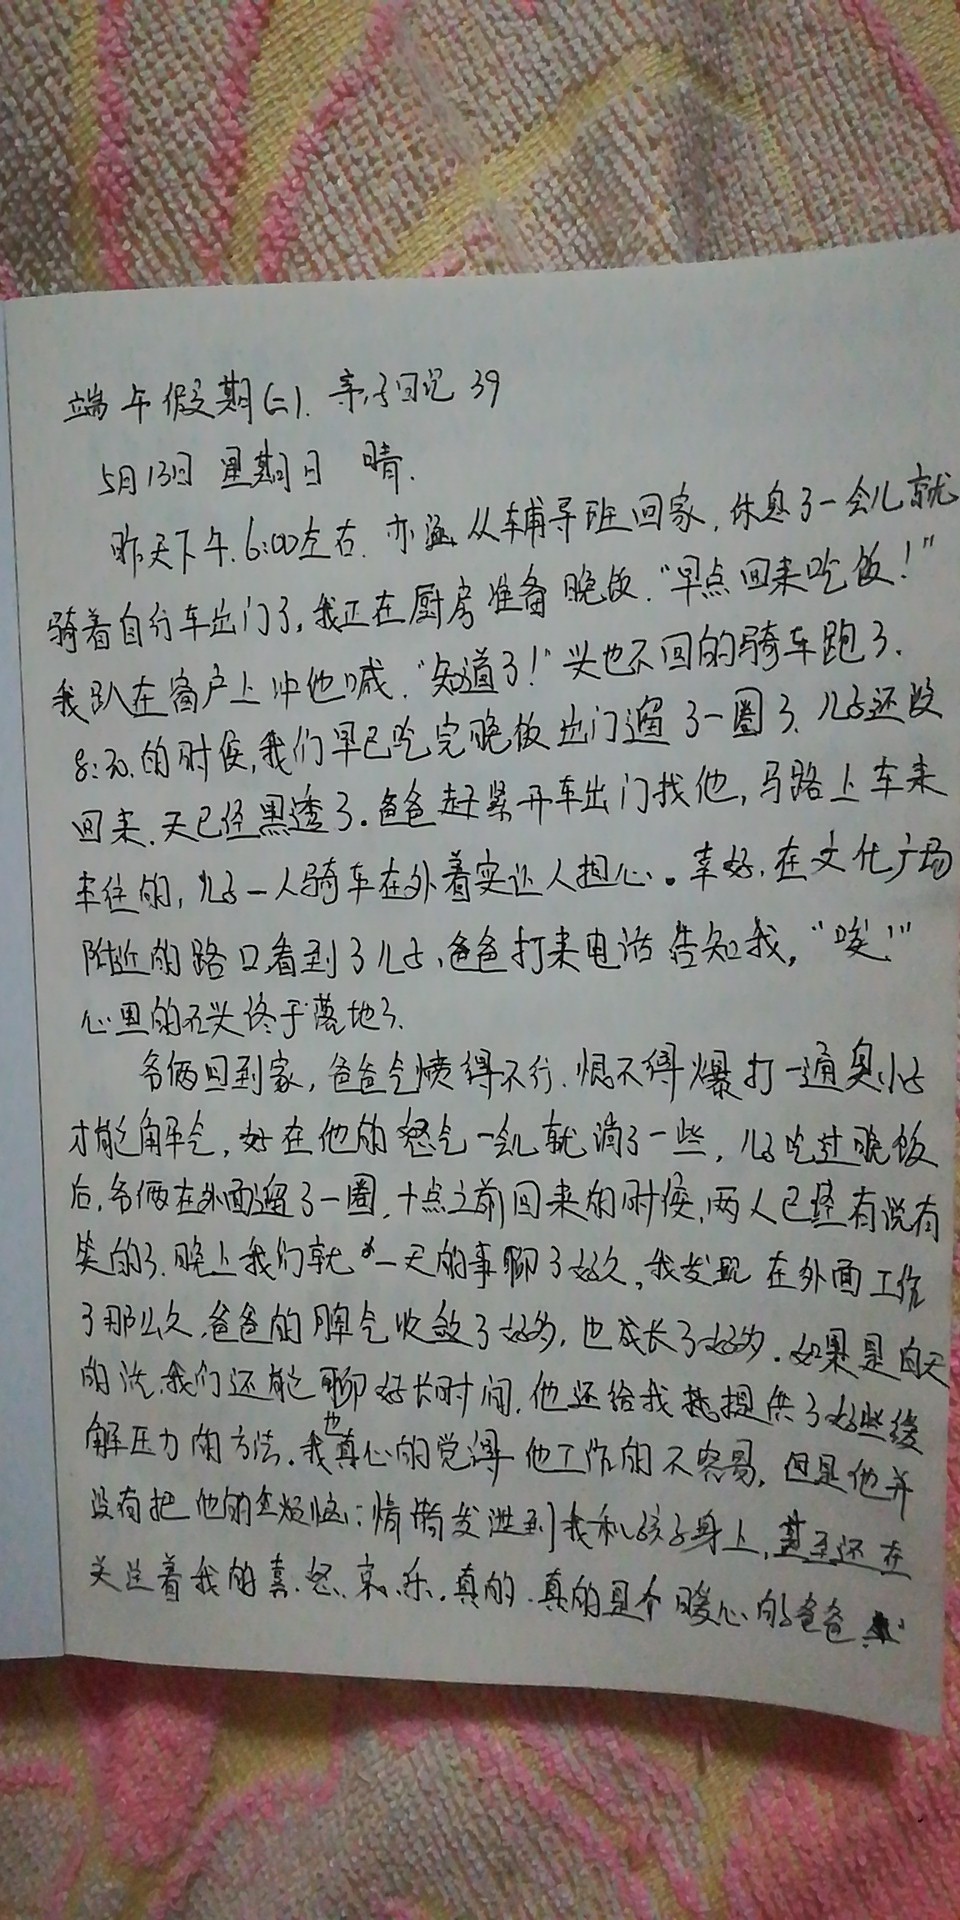 端午假期(二). 亲子日记 39
5月13日 星期日 晴.
昨天下午.6:00左右.亦涵从辅导班回家,休息了一会儿就
骑着自行车出门了,我正在厨房准备晚饭."早点回来吃饭!"
我趴在窗户上冲他喊."知道了!"头也不回的骑车跑了.
8:30.的时候,我们早已吃完晚饭出门遛了一圈了.儿子还没
回来.天已经黑透了.爸爸赶紧开车出门找他,马路上车来
车往的,儿子一人骑车在外着实让人担心。幸好,在文化广场
附近的路口看到了儿子,爸爸打来电话告知我,"唉!"
心里的石头终于落地了.
爷俩回到家,爸爸气愤得不行.恨不得爆打一通臭小子
才能解气,好在他的怒气一会儿就消了一些,儿子吃过晚饭
后,爷俩在外面遛了一圈,十点之前回来的时候,两人已经有说有
笑的了.晚上我们就一天的事聊了好久,我发现在外面工作
了那么久,爸爸的脾气收敛了好多,也成长了好多.如果是白天
的话,我们还能聊好长时间,他还给我提供了好些缓
解压力的方法.我也真心的觉得他工作的不容易,但是他并
没有把他的烦恼;情绪发泄到我和孩子身上,甚至还在
关注着我的喜.怒.哀.乐.真的.真的是个暖心的爸爸